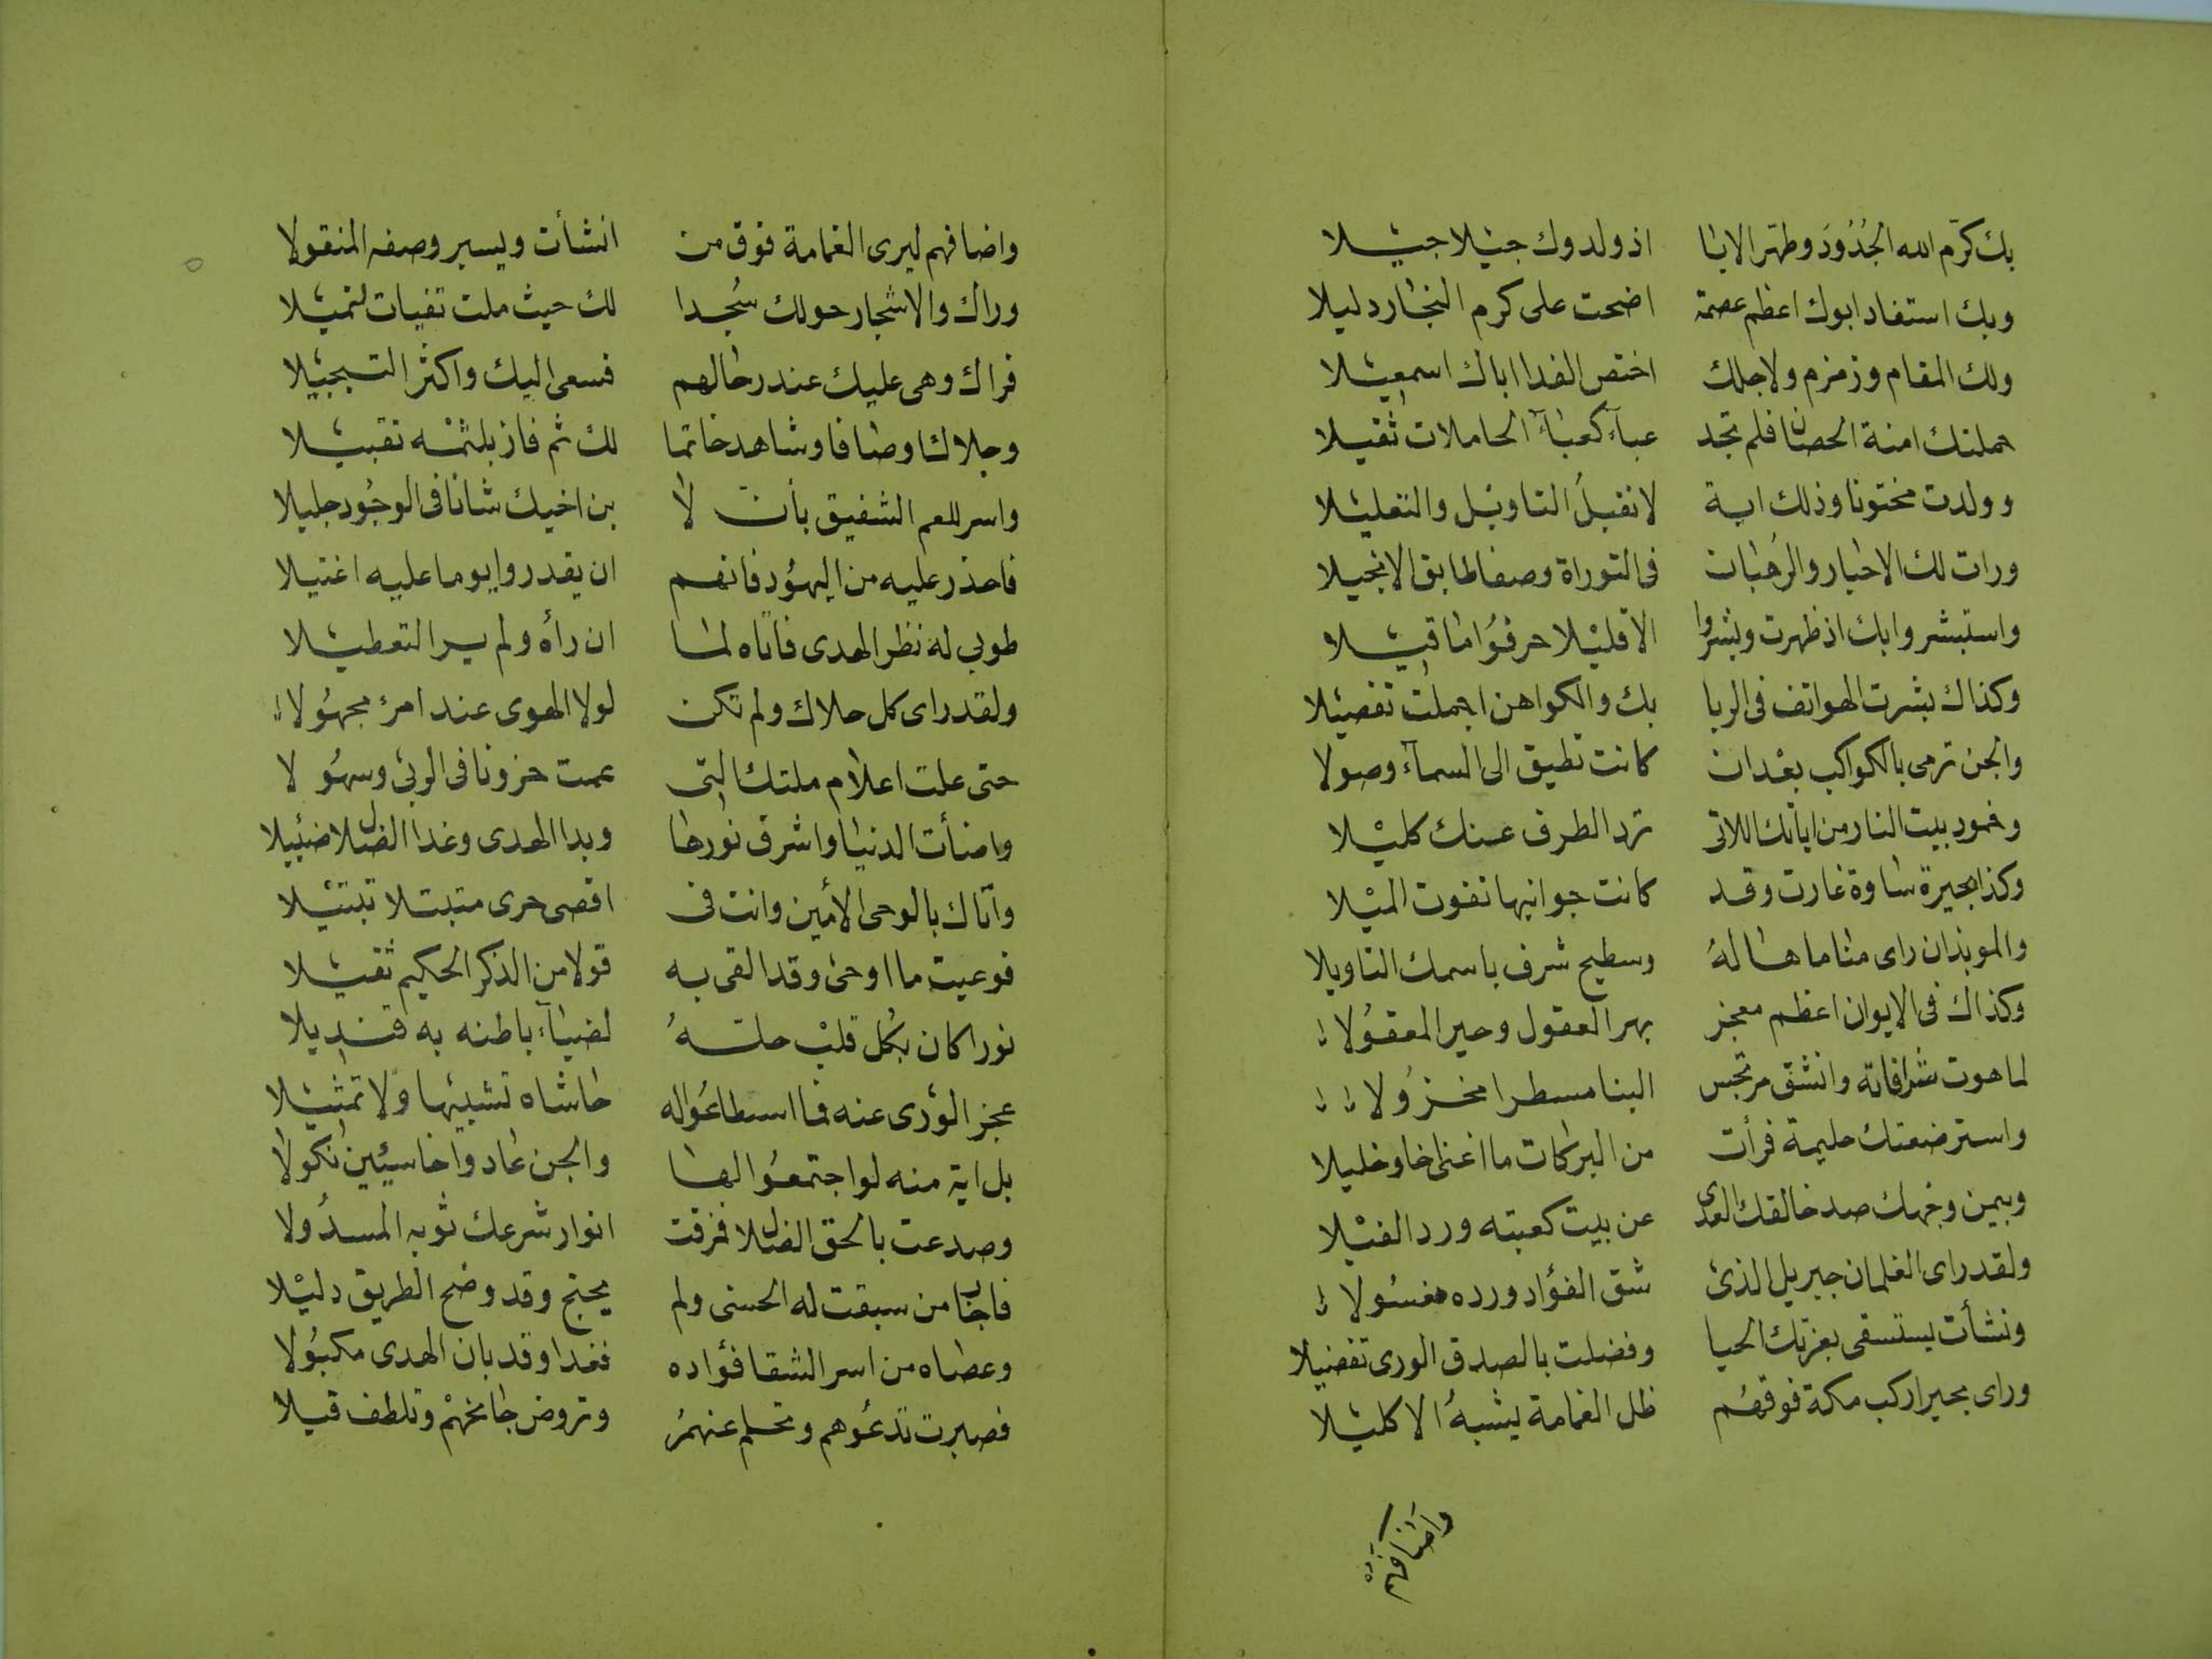 بك كرّم الله الجُدُودَ وطهّر الابا اذ ولدوك جيلا جيلا
وبك استفاد ابوك اعظم عصمة اضحت على كرم النجار دليلا
ولك المقام وزمزم ولاجلك اختص الفدا اباك اسمعيلا
حملتك امنة الحصان فلم تجد عبآء كعبآء الحاملات ثقيلا
وولدت مختونا وذلك اية لا تقبلُ التاويل والتعليلا
ورات لك الاحبار والرُهبان في التوراة وصفا طابق الانجيلا
واستبشروا بك اذ ظهرت وبشروا الا قليلا حرفوُا ما قيلا
وكذاك بشرت الهواتف في الربا بك والكواهن اجملت تفصيلا
والجن ترمى بالكواكب بعْد ان كانت تطيق الى السمآء وصولا
وخمود بيت النار من اياتك اللاتى ترد الطرف عنك كليلا
وكذا بحيرة ساوة غارت وقد كانت جوانبها تفوت الميْلا
والموبذان راى مناما هاله وسطيح شرف باسمك التاويلا
وكذاك في الايوان اعظم معجز بهر العقول وحير المعقوُلا
لما هوت شرافاته وانشق مرتجس البنا مسطرا مخزوُلا
واسترضعتك حليمة فرأت من البركات ما اغنى اخا وخليلا
وبيمن وجهك صد خالقك العدى عن بيت كعبته ورد الفيْلا
ولقد راى الغلمان جبريل الذى شق الفؤاد ورده مغسُولا
ونشأت يستسقى بعزتك الحيا وفضلت بالصدق الورى تفضيلا
وراى بحيرا ركب مكة فوقهُم ظل الغمامة يشبهُ الاكليْلا
واضافهم
واضافهم ليرى الغمامة فوق من انشأت ويسير وصفه المنقولا
وراك والاشجار حولك سُجدا لك حيث ملت تفيات لتميلا
فراك وهي عليك عند رحالهم فسعى اليك واكثر التبجيْلا
وجلاك اوصافا وشاهد خاتما لك ثم فاز بلثمْه تقبيلا
واسر للعم الشفيق بأن لا بن اخيك شانا في الوجُود جليلا
فاحذر عليه من اليهُود فانهم ان يقدروا يوما عليه اغتيلا
طوبى له نظر الهدى فاتاه لما ان رأه ولم ير التعطيلا
ولقد راى كل حلاك ولم تكن لولا الهوى عند امرئ مجهُولا
حتى علت اعلام ملتك التى عمت حزونا في الربى وسهُولا
واضأت الدنيا واشرق نورها وبدا الهدى وغدا الضلال ضئيلا
وآتاك بالوحى الأمين وانت في اقصى حرى متبتلا تبتيْلا
فوعيت ما اوحى وقد القى به قولا من الذكر الحكيم ثقيلا
نورا كان بكُل قلبْ حلتهُ لضيآء باطنه به قنديلا
عجز الورى عنه فما اسطاعُوا له حاشاه تشبيها ولا تمثيْلا
بل اية منه لو اجتمعُوا لها والجن عادوا خاسيئين نكولا
وصدعت بالحق الضلال فمزقت انوار شرعك ثوبه المسدُولا
فاجاب من سبقت له الحسنى ولم يحتج وقد وضح الطريق دليْلا
وعصاه من اسر الشقا فؤاده فغدا وقد بان الهدى مكبُولا
فصبرت تدعُوهم وتحلم عنهمُ وتروض جامحهْم وتلطف قيلا